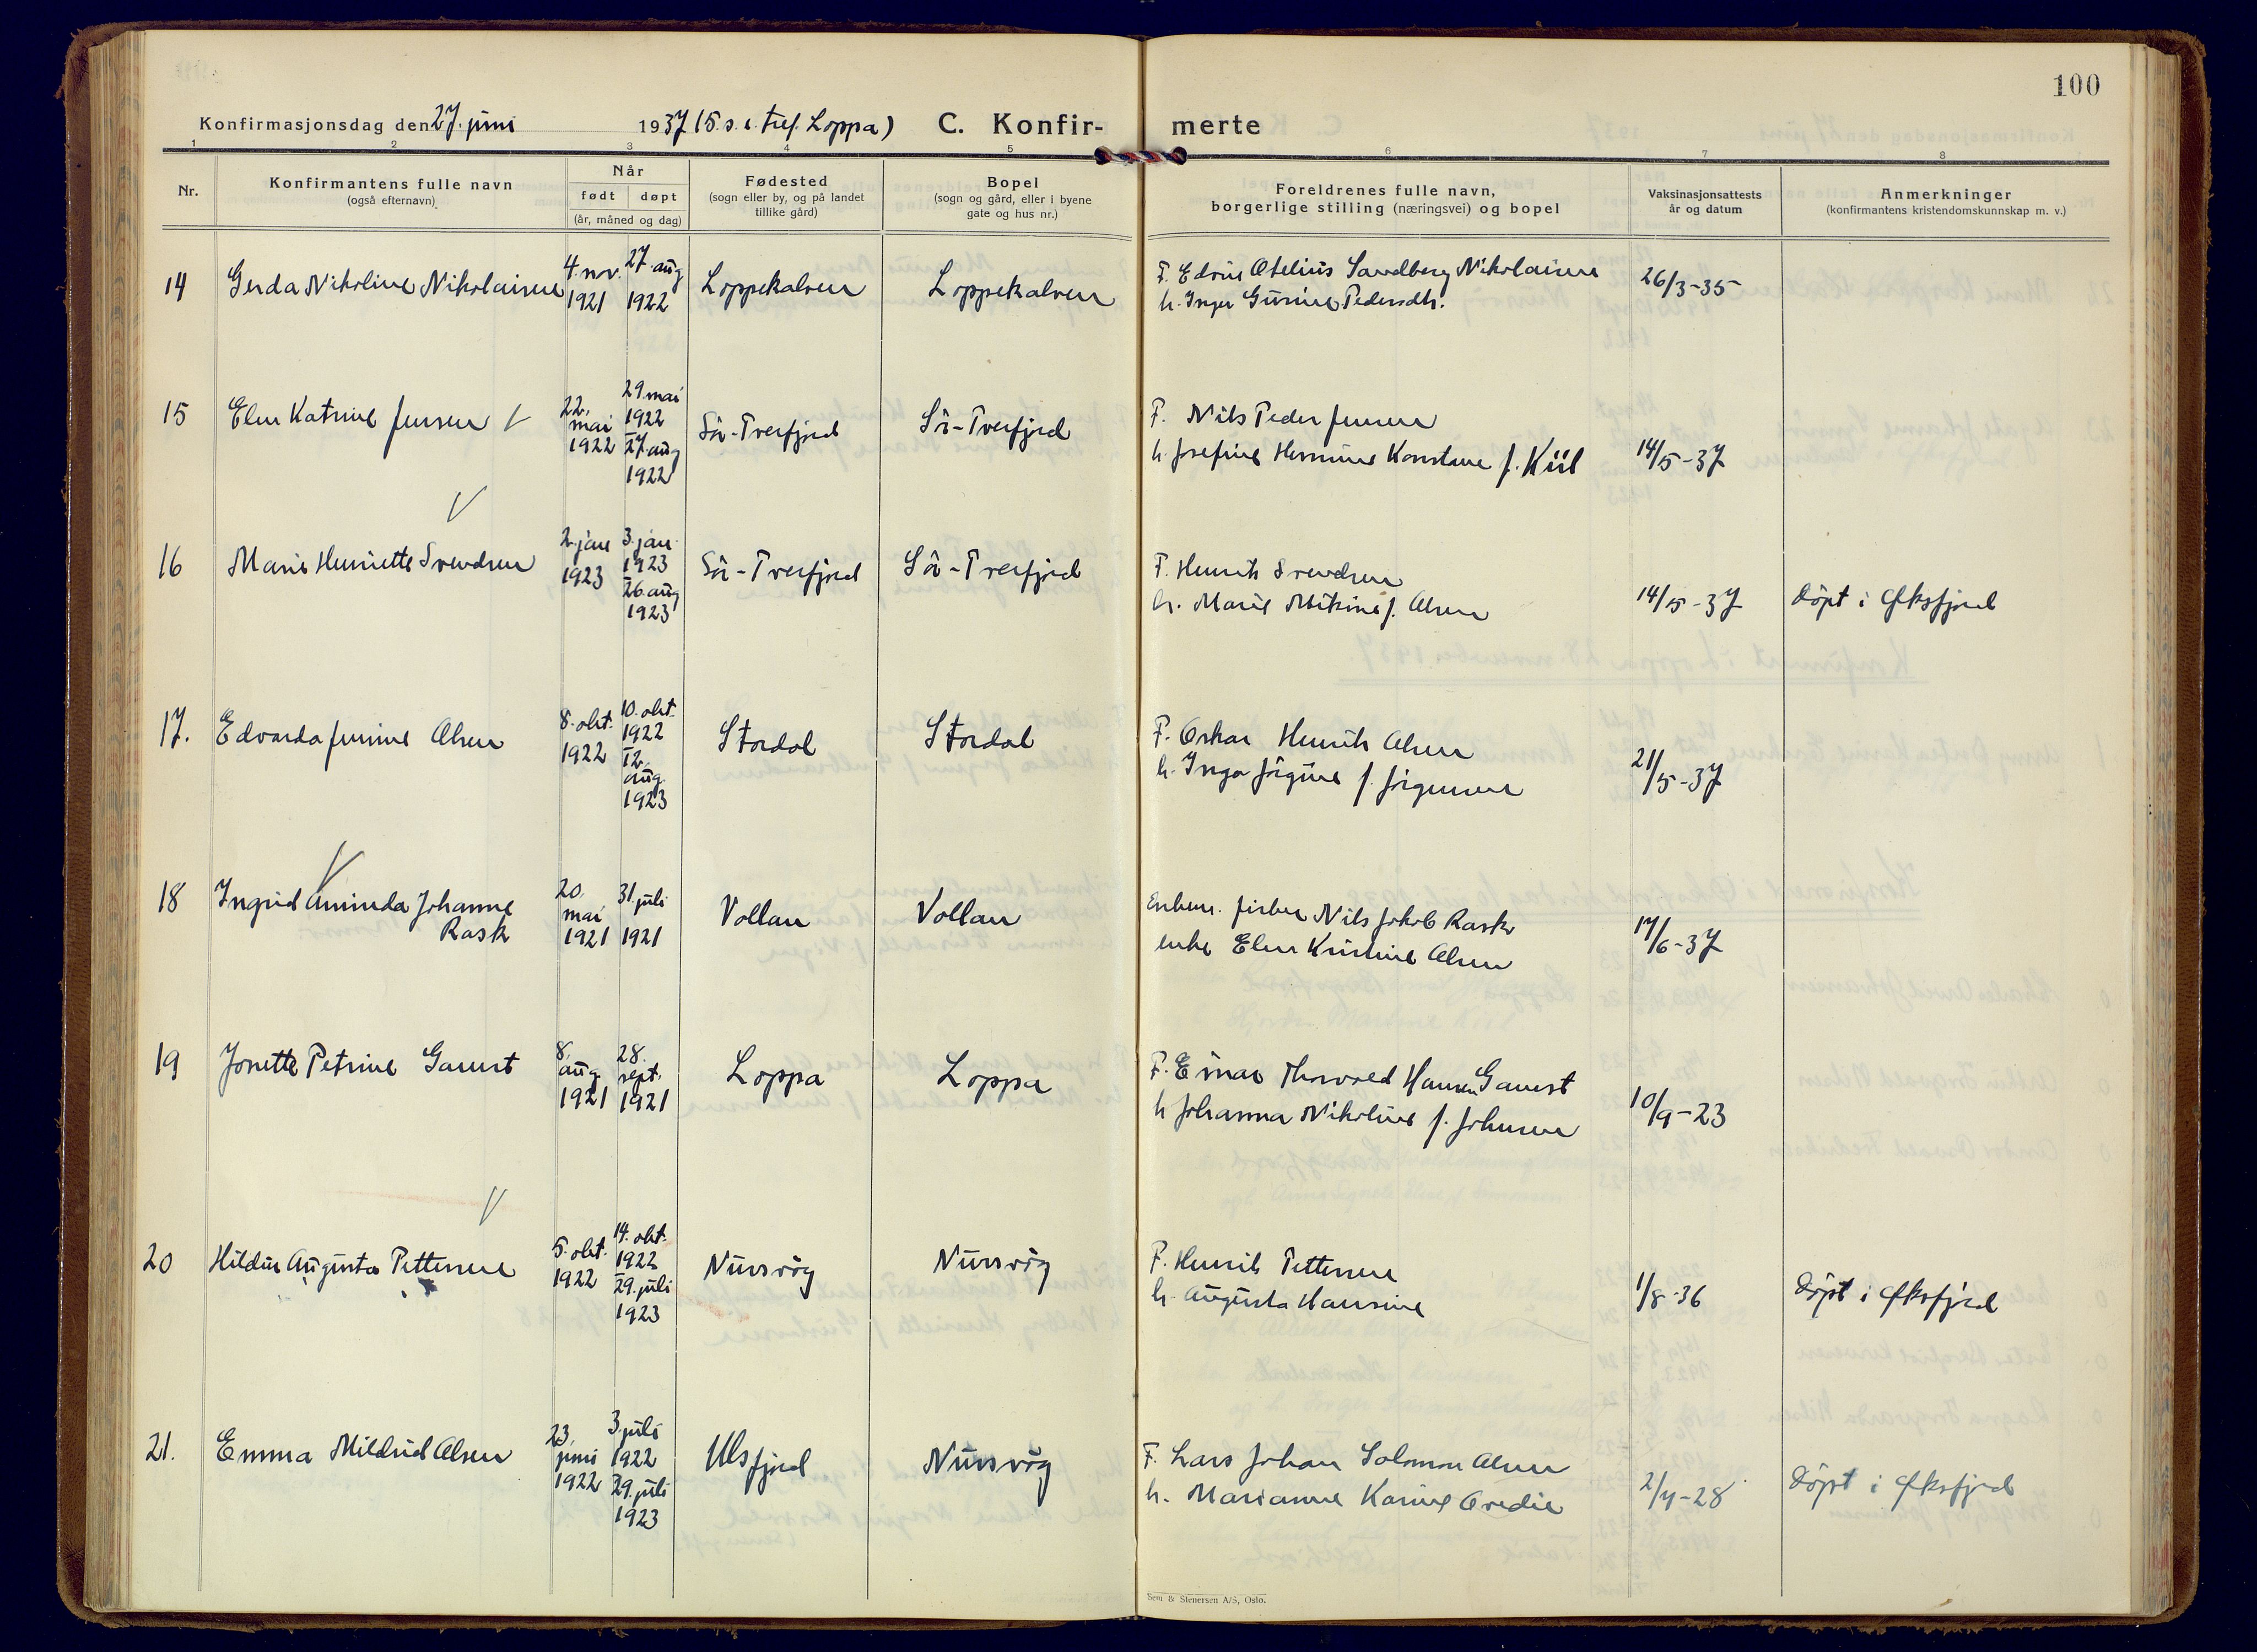 100
Konfirmasjonsdag den 27. juni 1937 (5. s. e. tref. Loppa) C. Konfir- merte
1 2 3 4 5 6 7 8
Nr.
Konfirmantens fulle navn
(også efternavn)
Når
født døpt
(år, måned og dag)
Fødested
(sogn eller by, og på landet
tillike gård)
Bopel
(sogn og gård, eller i byene
gate og hus nr.)
Foreldrenes fulle navn,
borgerlige stilling (næringsvei) og bopel
Vaksinasjonsattests
år og datum
Anmerkninger
(konfirmantens kristendomskunnskap m. v.)
14
Gerda Nikoline Nikolaisen
4. nov.
1921
27. aug
1922
Loppekalven
Loppekalven
F. Edvin Otelius Sandberg Nikolaisen
h. Inger Gurine Pedersdtr.
26/3-35
15
Elen Katrine Jensen
22.
mai
1922
29. mai
1922
27. aug
1922
Sör-Tverfjord
Sör-Tverfjord
F. Nils Peder Jensen
h. Josefine Hermine Konstane f. Kiil
14/5-37
16
Marie Henriette Svendsen
2. jan
1923
3. jan.
1923
26. aug
1923
Sör-Tverfjord
Sör-Tverfjord
F. Henrik Svendsen
h. Marie Mikine f. Olsen
14/5-37
döpt i Øksfjord
17.
Edvarda Jensine Olsen
8. okt.
1922
10. okt.
1922
12.
aug.
1923
Stordal
Stordal
F. Oskar Henrik Olsen
h. Inga Jörgine f. Jörgensen
21/5-37
18
Ingrid Aminda Johanne
Rask
20.
mai
1921
31. juli
1921
Vollan
Vollan
Enkem. fisker Nils Jakob Rask
enke Elen Kristine Olsen
17/6-37
19
Jonette Petrine Gamst
8.
aug
1921
28.
sept.
1921
Loppa
Loppa
F. Einar Thorvald Hansen Gamst
h Johanna Nikoline f. Johnsen
10/9-23
20
Hildur Augusta Pettersen
5. okt.
1922
14. okt.
1922
29. juli
1923
Nuvsvög
Nuvsvög
F. Henrik Pettersen
h. Augusta Hansine
1/8-36
döpt i Øksfjord
21.
Emma Mildrid Olsen
23.
juni
1922
3. juli
1922
29. juli
1923
Ulsfjord
Nuvsvög
F. Lars Johan Salomon Olsen
h. Marianne Karine Ovedie
2/4-28
döpt i Øksfjord
Sem & Stenersen A/S, Oslo.